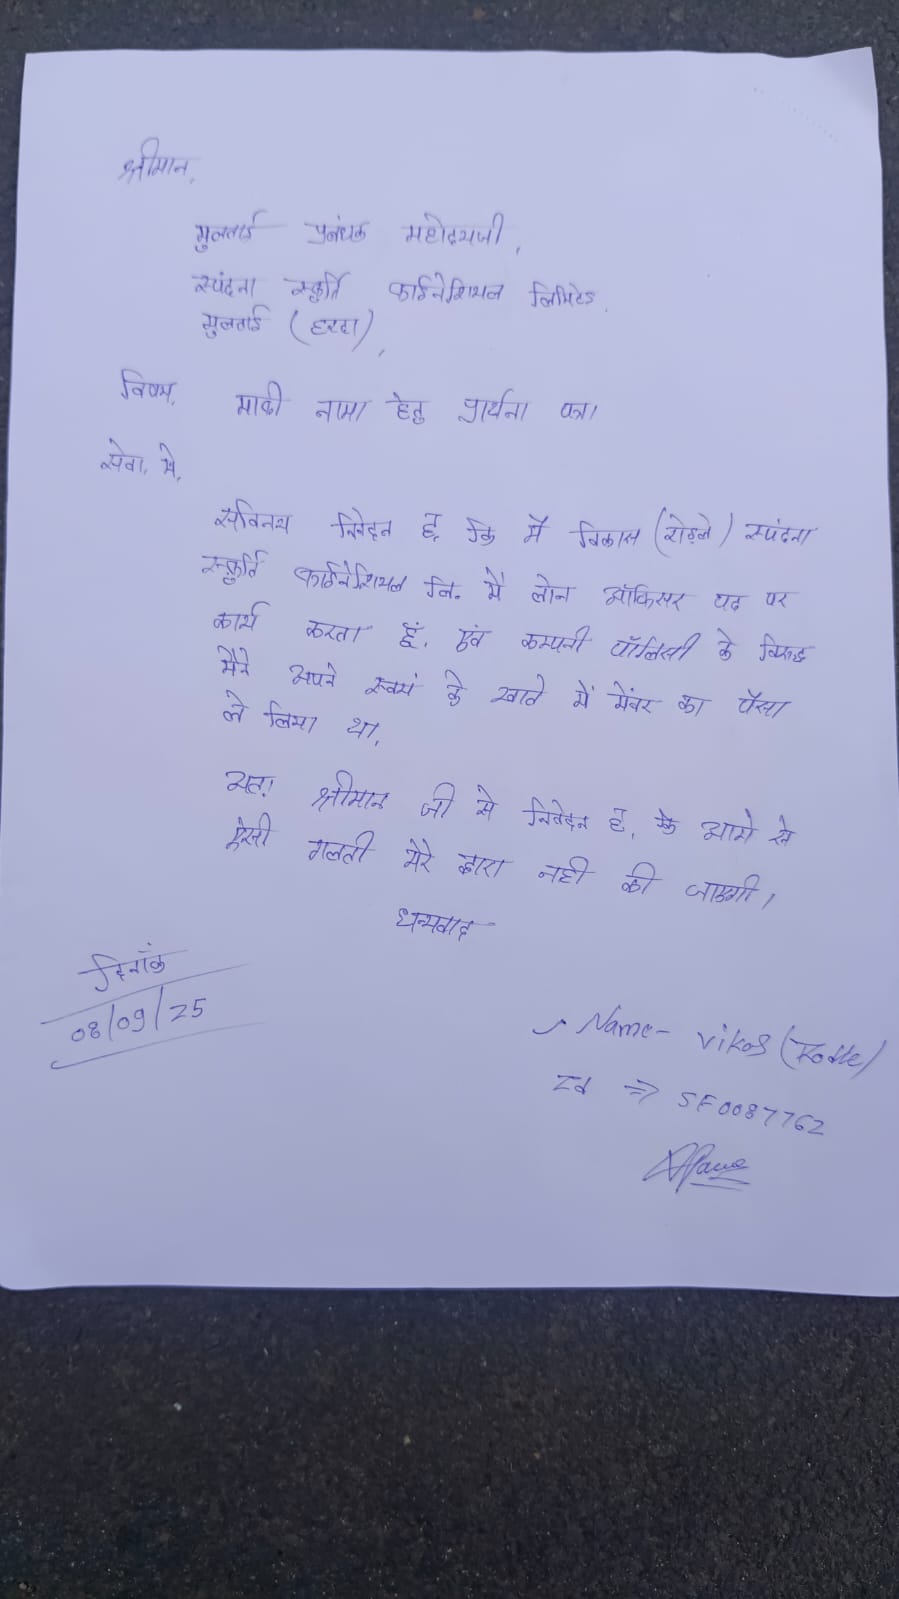 श्रीमान,
मुलताई प्रबंधक महोदयजी,
स्पंदना स्फूर्ति फाईनेंशियल लिमिटेड,
मुलताई (हरदा),
विषय, माफी नामा हेतु प्रार्थना पत्र।
सेवा, मे,
सविनय निवेदन है, कि मैं विकास (रोड़ले) स्पंदना
स्फूर्ति फाईनेंशियल लि. मै लोन ऑफिसर पद पर
कार्य करता हूँ, एंव कम्पनी पॉलिसी के विरुद्ध
मैने अपने स्वयं के खाते में मेंबर का पैसा
ले लिया था,
अत! श्रीमान जी से निवेदन है, के आगे से
ऐसी गलती मेरे द्वारा नही की जाएगी।
धन्यवाद
दिनाँक
08/09/25
Name- Vikas
Id => SF0087762